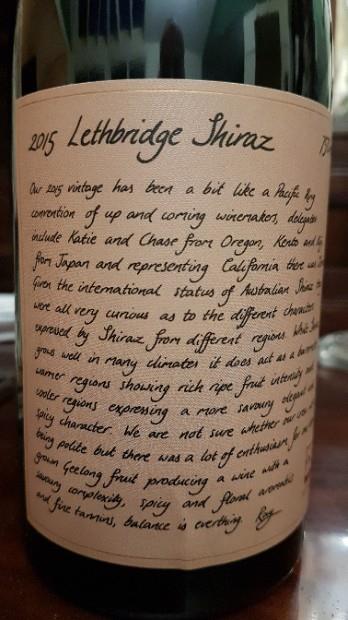 2015 Lethbridge Shiraz 75
Our 2015 vintage has been a bit like a Pacific
convention of up and coming winemakers, delegates
include Katie and Chase from Oregon, Kento and
from Japan and representing California there was
Given the international status of Australian Shiraz
were all very curious as to the different characters
expressed by Shiraz from different regions. While
grows well in many climates it does act as a
warmer regions showing rich ripe fruit intensity and
cooler regions expressing a more savoury elegant
spicy character. We are not sure whether our
being polite but there was a lot of enthusiasm for
grown Geelong fruit producing a wine with a
savoury complexity, spicy and floral aromatics
and fine tannins, balance is everthing. Ray